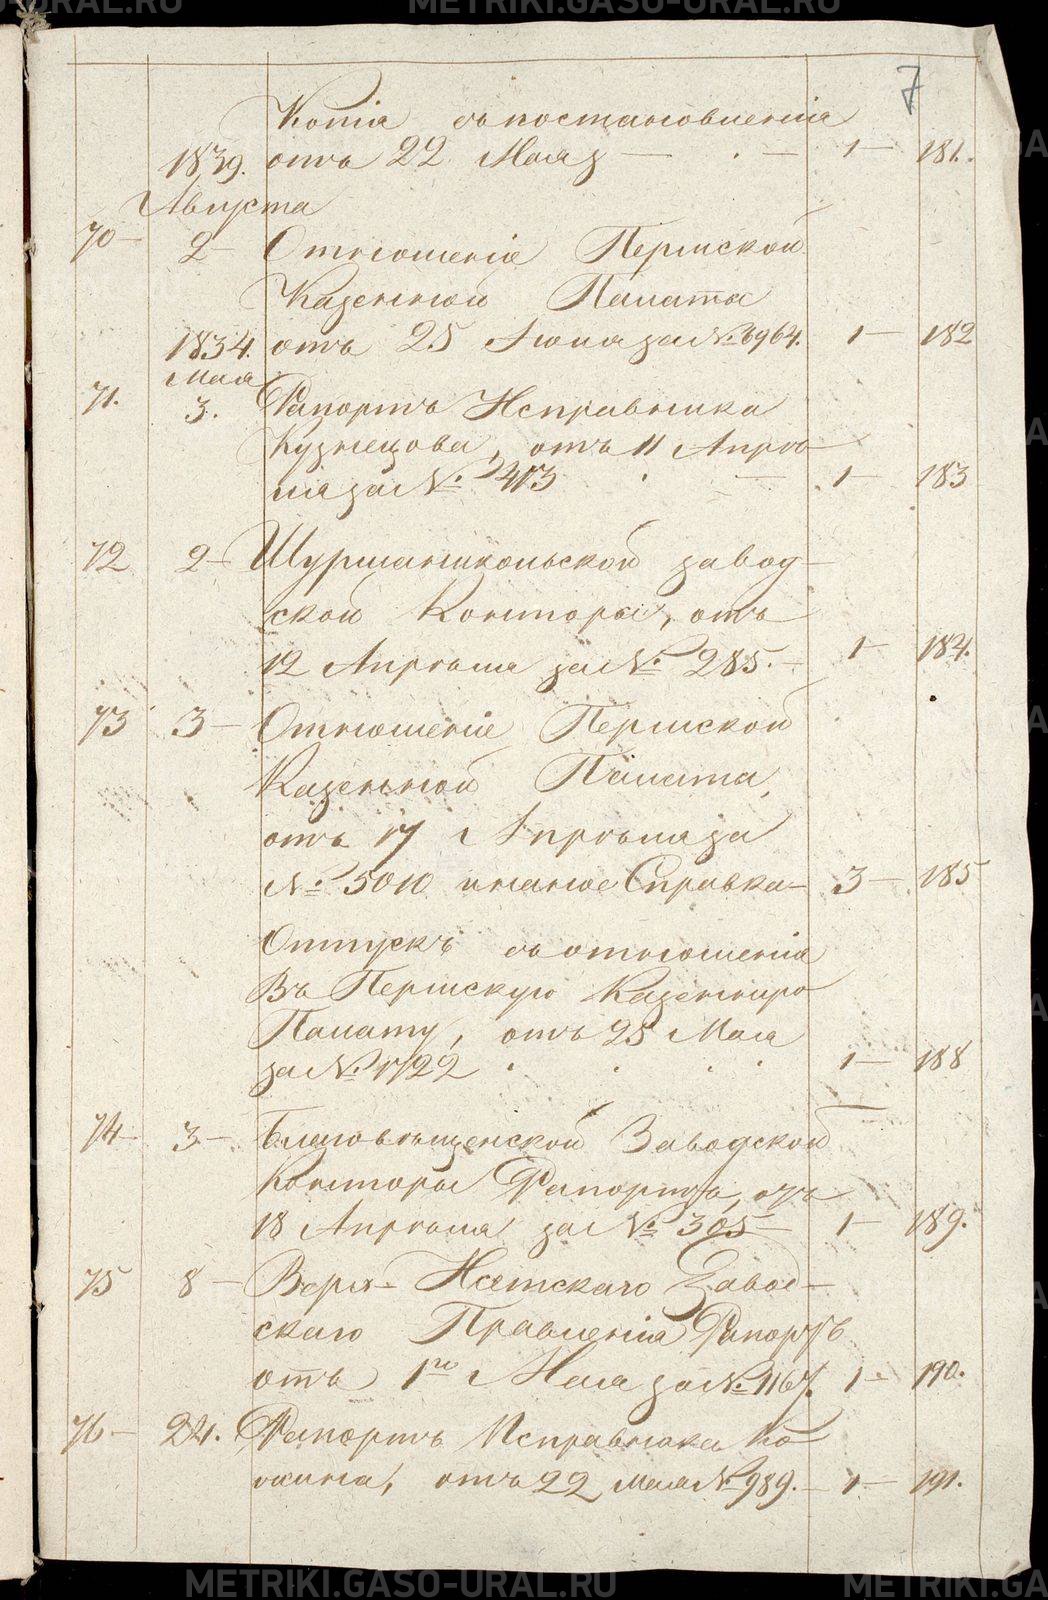 METRIKI.GASO-URAL.RU
7
Копія съ постановленія
1839. отъ 22 Мая — 1— 181.
Августа
70— 2— Отношеніе Пермской
Казенной Палаты
1834. отъ 25 Іюля за № 6964. 1— 182
Мая
71. 3. Рапортъ Исправника
Кузнецова, отъ 11 Апрѣ-
ля за № 2413 1— 183
72 2— Шурманикольской завод-
ской Конторы, отъ
12 Апрѣля за № 285.— 1— 184.
73 3— Отношеніе Пермской
Казенной Палаты,
отъ 17 Апрѣля за
№ 5010 и Справка— 3— 185
Отпускъ съ отношенія
Въ Пермскую Казенную
Палату, отъ 25 Мая
за № 1722 1— 188
74— 3— Благовѣщенской Заводской
Конторы Рапортъ, отъ
18 Апрѣля за № 305— 1— 189.
75 8— Верх-Исетскаго Завод-
скаго Правленія Рапортъ
отъ 1го Мая за № 1167. 1— 190.
76— 24. Рапортъ Исправника
отъ 22 Мая № 989.— 1— 191.
METRIKI.GASO-URAL.RU